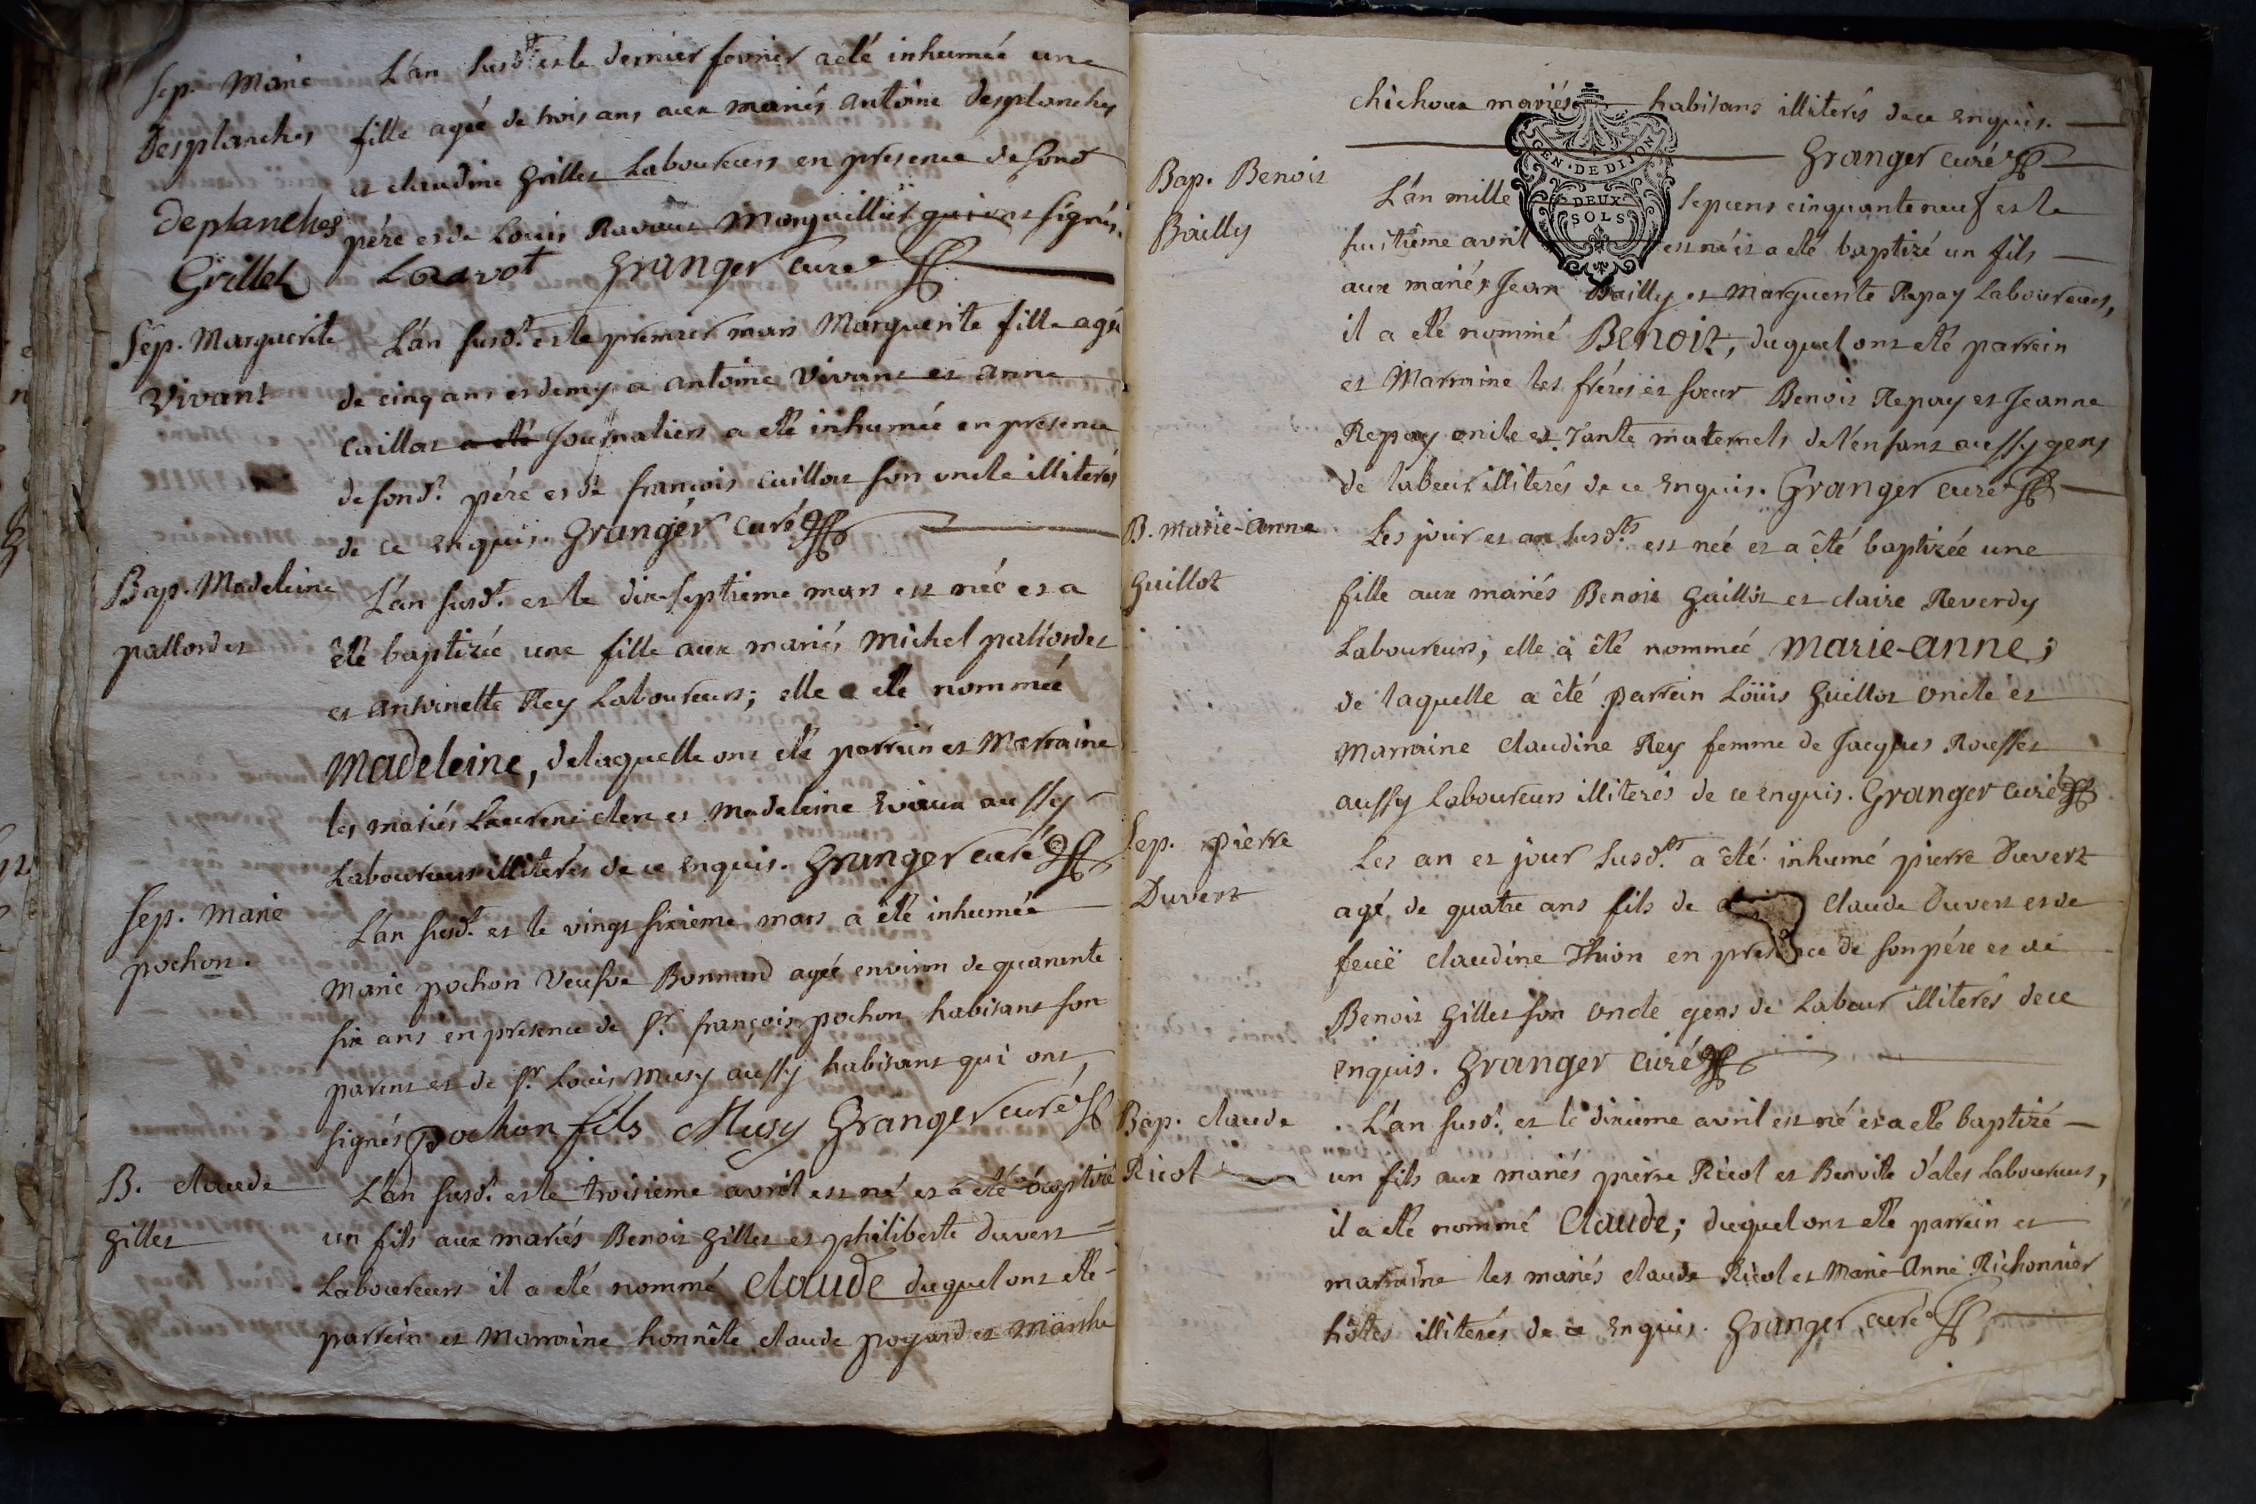 Sep. Marie
Desplanches
L'an susd.t et le dernier fevrier a eté inhumée une
fille agée de trois ans aux mariés antoine Desplanches
et claudine Grillet Laboureurs en presence de sond
pére et de Louis Ravaut Marguillier qui ont signés.
Deplanches
Grillet Loravot Granger curé
Sep. Marguerite
Vivant
L'an susd.t et le premier mars Marguerite fille agée
de cinq ans et demy a antoine Vivant et anne
caillot a eté Journaliers a eté inhumée en presence
de sond.t pére et de françois caillot son oncle illiterés
de ce enquis. Granger curé
Bap. Madeleine
pallordet
L'an susd.t et le dixseptieme mars est née et a
eté baptizée une fille aux mariés Michel pallordet
et antoinette Rey Laboureurs; elle a eté nommée
Madeleine, de laquelle ont eté parrein et Marraine
les mariés Laurent clerc et Madeleine Evieux aussy
Laboureurs illiterés de ce enquis. Granger curé
Sep. Marie
pochon.
L'an susd.t et le vingt sixieme mars a eté inhumée
Marie pochon Veusve Bonnard agée environ de quarante
six ans en presence de s.r françois pochon habitant son
parent et de s.r Louis Musy aussy habitant qui ont
signés pochon fils Musy Granger curé
B. claude
Gillet
L'an susd.t et le troisieme avril est né et a eté baptizé
un fils aux mariés Benoit Gillet et philiberte duvert
Laboureurs il a eté nommé claude duquel ont eté
parrein et Marraine honnête claude poyard et Marthe
chichoux mariés habitans illiterés de ce enquis.
Granger curé
GEN. DE DIJON
DEUX
SOLS
Bap. Benoit
Bailly
L'an mille sept cens cinquante neuf et le
huitiême avril est né et a eté baptizé un fils
aux mariés Jean Bailly et Marguerite Repay Laboureurs,
il a eté nommé Benoit, duquel ont eté parrein
et Marraine les fréres et soeur Benoit Repay et Jeanne
Repay oncle et Tante maternels de l'enfant aussy gens
de labeur illiterés de ce enquis. Granger curé
B. Marie-Anne
Guillot
Les jour et an susd.ts est née et a êté baptizée une
fille aux mariés Benoit Guillot et claire Reverdy
Laboureurs; elle a êté nommée Marie-anne;
de laquelle a êté parrein Loüis Guillot oncle et
Marraine claudine Rey femme de Jacques Rousset
aussy Laboureurs illiterés de ce enquis. Granger curé
Sep. pierre
Duvert
Les an et jour susd.ts a êté inhumé pierre Duvert
agé de quatre ans fils de claude Duvert et de
feuë claudine Thion en presence de son pére et de
Benoit Gillet son oncle gens de Labeur illiterés de ce
enquis. Granger curé
Bap. claude
Ricol
L'an susd.t et le dixieme avril est né et a eté baptizé
un fils aux mariés pierre Ricol et Benoite d'ales Laboureurs,
il a eté nommé Claude; duquel ont eté parrein et
marraine les mariés claude Ricol et Marie-Anne Richonnier
hôtes illiterés de ce enquis. Granger curé